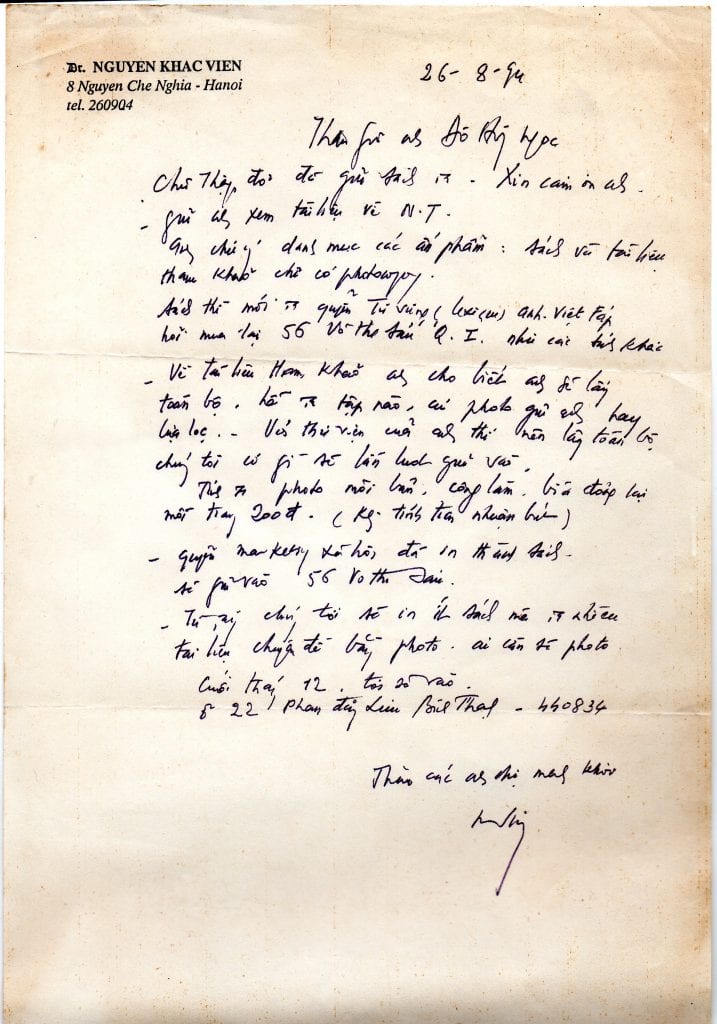 Dr. NGUYEN KHAC VIEN
8 Nguyen Che Nghia - Hanoi
tel. 260904
26 - 8 - 94
Thân gửi anh Đỗ Hồng Ngọc
Chữ Thập đỏ đã gửi sách ra. Xin cám ơn anh.
- Gửi anh xem tài liệu về N.T.
chú ý danh mục các ấn phẩm : sách và tài liệu
tham khảo chỉ có photocopy.
Sách thì mới ra quyển Từ vựng (lexique) Anh. Việt Pháp
hỏi mua tại 56 Võ Thị Sáu Q. I. như các sách khác
- Về tài liệu tham khảo anh cho biết anh sẽ lấy
toàn bộ, hễ ra tập nào, cứ photo gửi anh hay
lựa lọc. - Với thư viện của anh thì nên lấy toàn bộ,
chúng tôi có gì sẽ lần lượt gửi vào.
Tính ra photo mỗi bản, công làm, bìa đóng lại
mỗi trang 200đ. (Kg tính tiền nhuận bút)
- quyển marketing xã hội đã in thành sách
sẽ gửi vào 56 Vo thi Sau.
- Từ nay chúng tôi sẽ in ít sách mà ra nhiều
tài liệu chuyên đề bằng photo. ai cần sẽ photo
Cuối tháng 12, tôi sẽ vào.
ở 22 Phan đăng Lưu Bình Thạnh - 440834
Thăm các anh chị mạnh khỏe